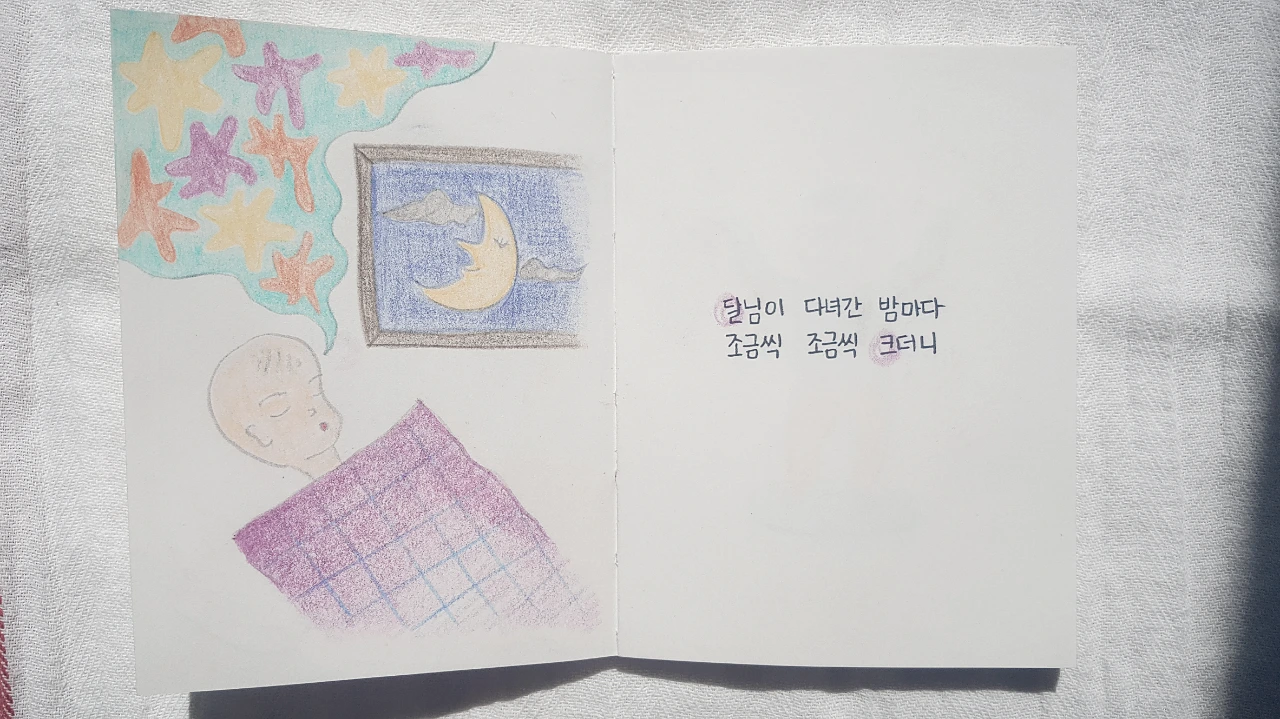 달님이 다녀간 밤마다
조금씩 조금씩 크더니